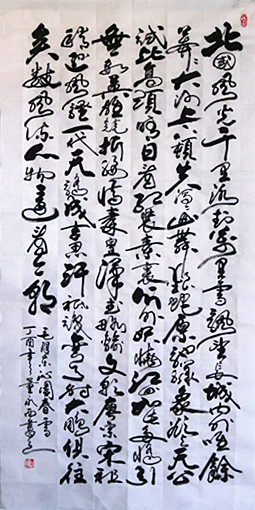 北國風光千里冰封萬里雪飄望長城內外唯餘
莽莽大河上下頓失滔滔山舞銀蛇原馳蠟象欲與天公
試比高須晴日看紅裝素裹分外妖嬈江山如此多嬌引
無數英雄競折腰惜秦皇漢武略輸文采唐宗宋祖
稍遜風騷一代天驕成吉思汗祗識彎弓射大鵰俱往
矣數風流人物還看今朝
毛澤東沁園春雪
丁酉年